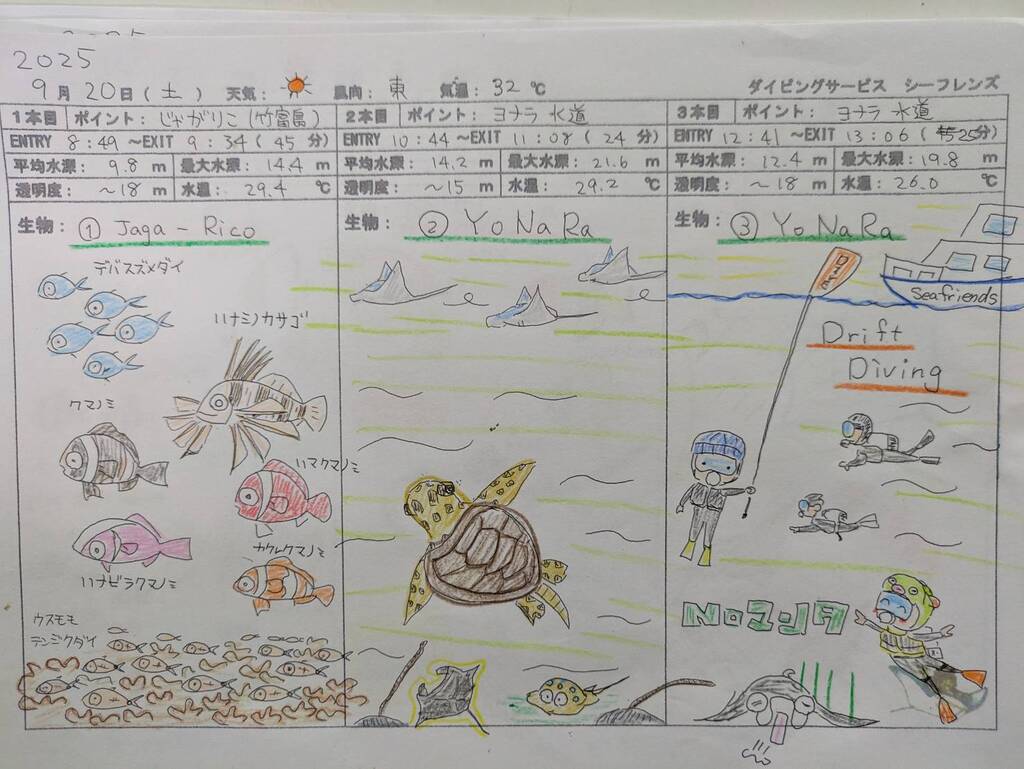 2025
9月20日(土) 天気: 風向: 東 気温: 32℃
ダイビングサービス シーフレンズ
1本目 ポイント: じゃがりこ(竹富島)
ENTRY 8:49 ~EXIT 9:34 (45分)
平均水深: 9.8 m 最大水深: 14.4 m
透明度: ~18 m 水温: 29.4 ℃
生物: ① Jaga-Rico
デバスズメダイ
ハナミノカサゴ
クマノミ
ハマクマノミ
カクレクマノミ
ハナビラクマノミ
ウスモモ
テンジクダイ
2本目 ポイント: ヨナラ水道
ENTRY 10:44 ~EXIT 11:08 (24分)
平均水深: 14.2 m 最大水深: 21.6 m
透明度: ~15 m 水温: 29.2 ℃
生物: ② YoNaRa
3本目 ポイント: ヨナラ水道
ENTRY 12:41 ~EXIT 13:06 (25分)
平均水深: 12.4 m 最大水深: 19.8 m
透明度: ~18 m 水温: 26.0 ℃
生物: ③ YoNaRa
DIVE
Seafriends
Drift
Diving
Noマンタ